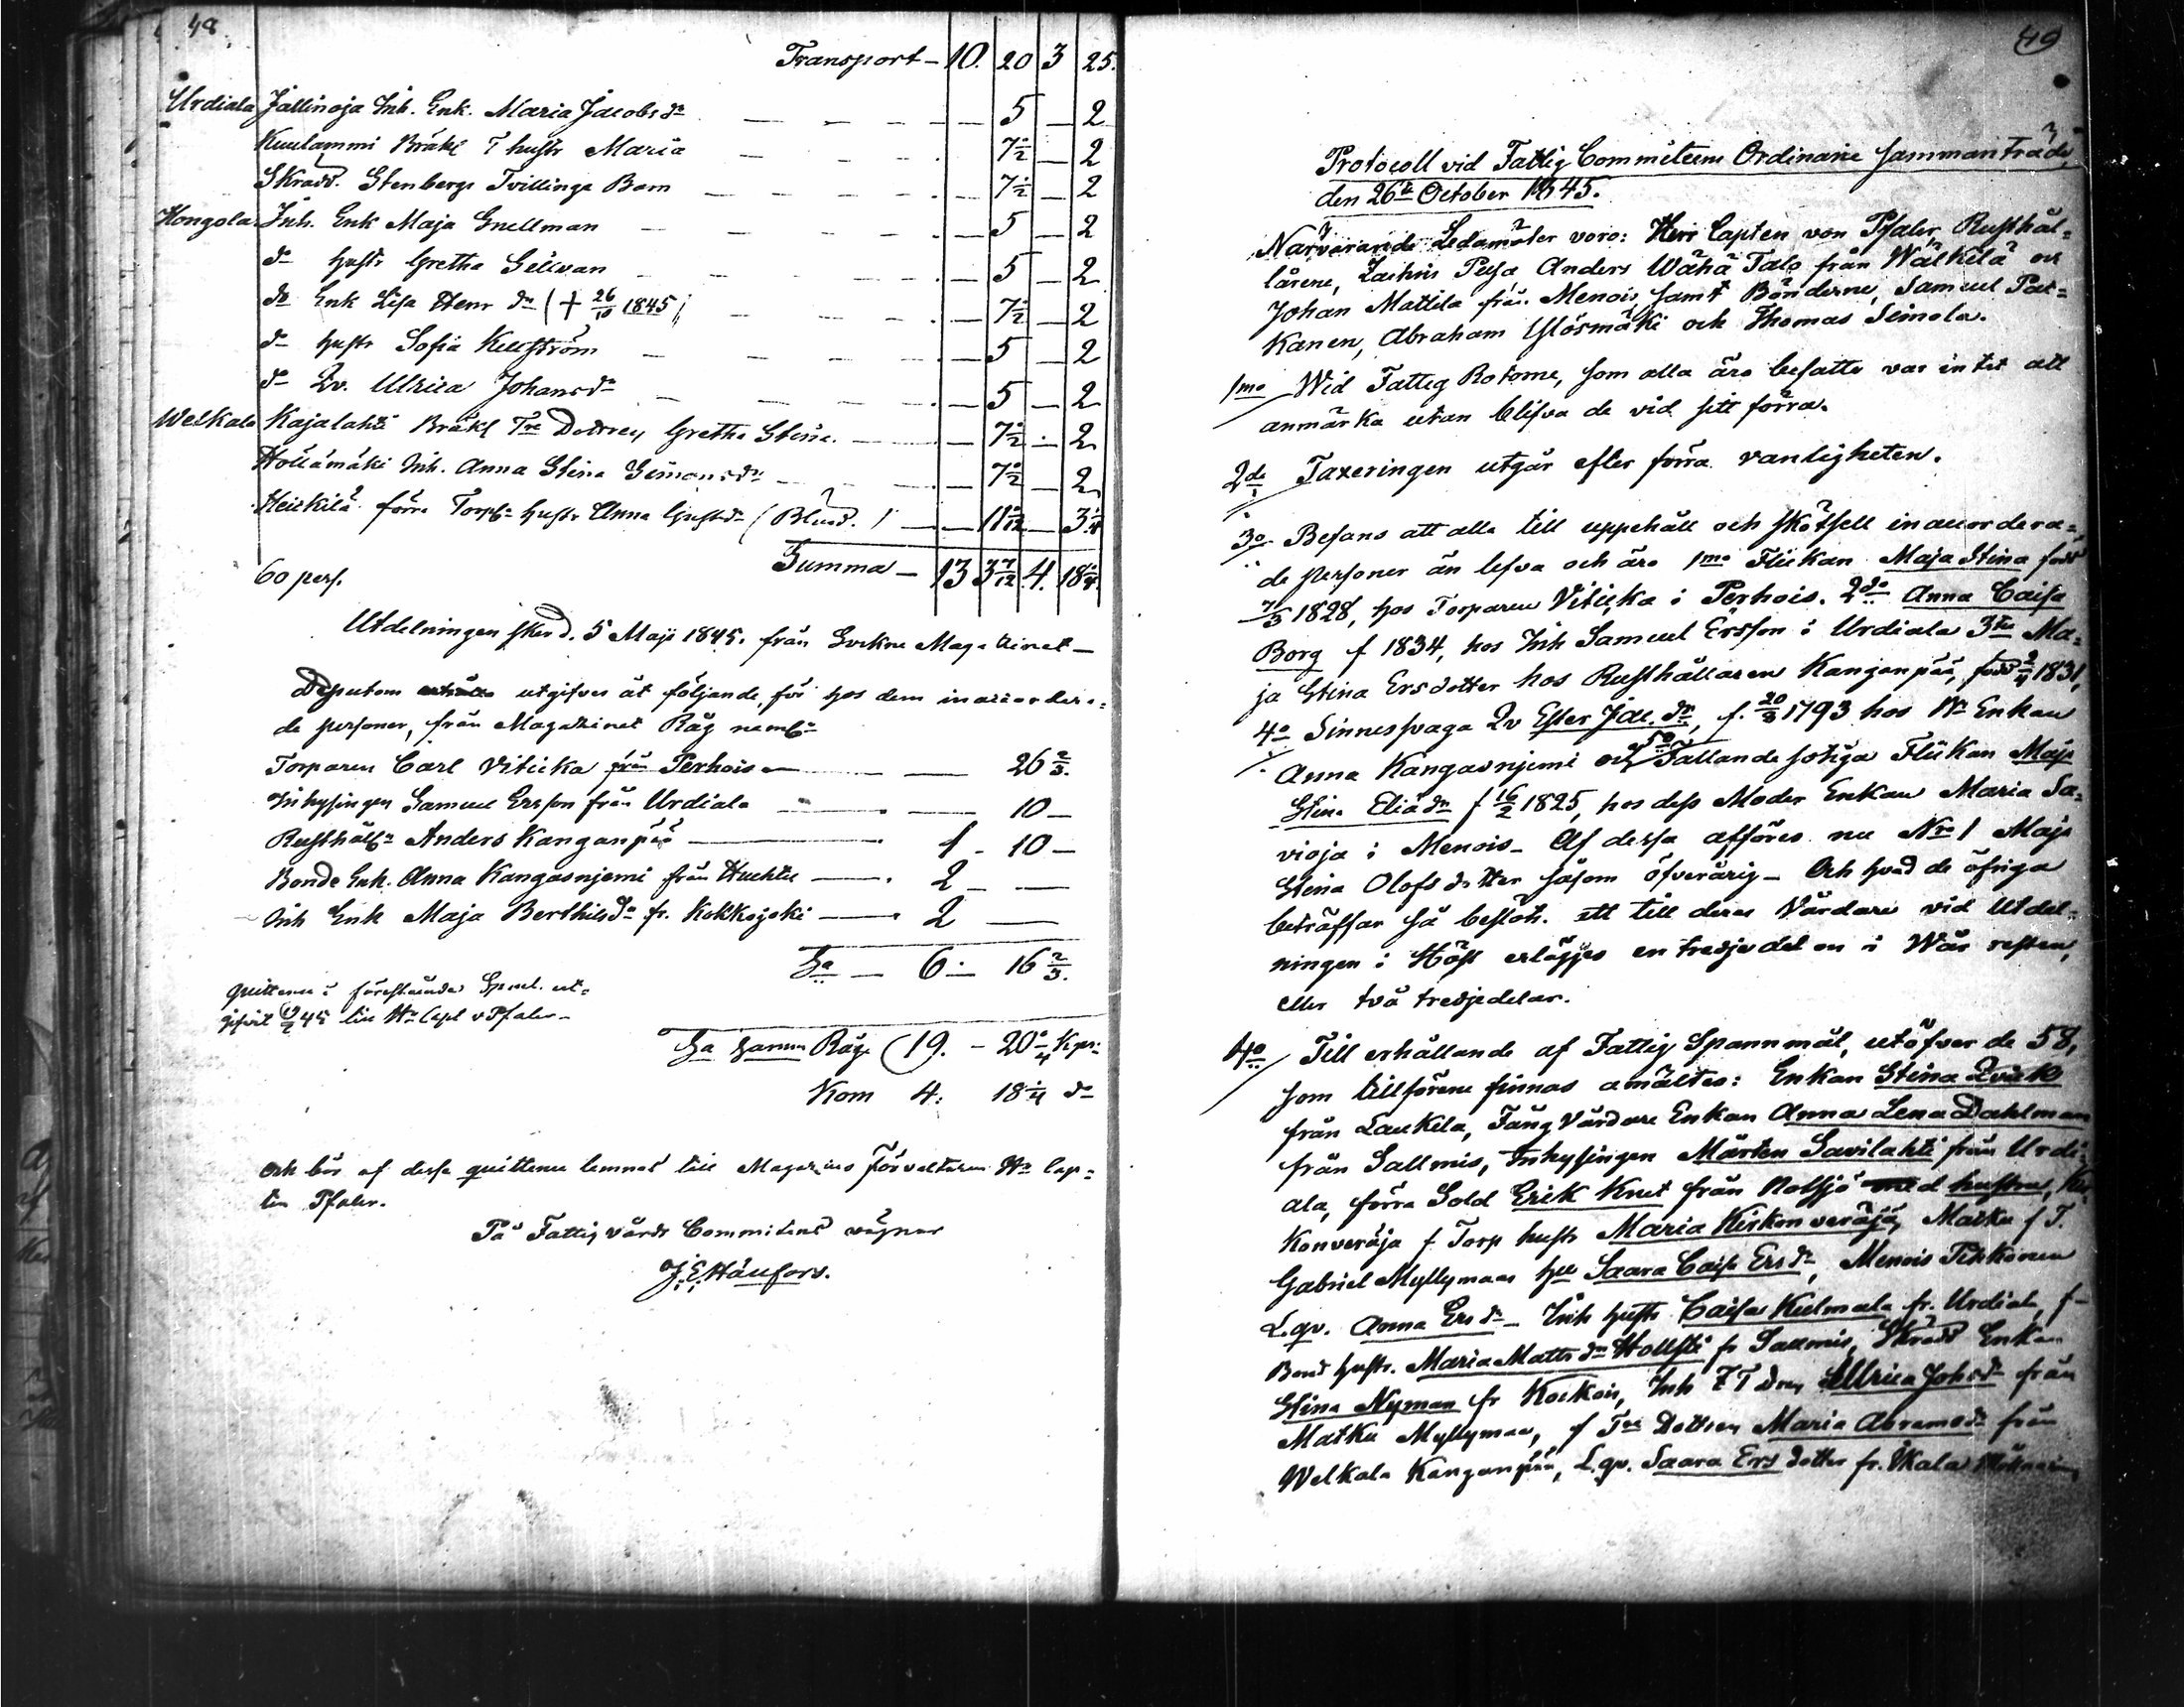 48.
Transport – 10. 20 3 25.
Urdiala Jallinoja Inh. Enk. Maria Jacobsdr — — — — 5 — 2
Kuulammi Bräkl T hustr Maria — — 7½ — 2
Skradd. Stenbergs Tvillinge Barn — — — — 7½ — 2
Hongola Inh. Enk Maja Gnellman — — — — 5 — 2
do hustr Gretha — — — — 5 — 2
do Enk Lisa Henr dr († 26/10 1845) — — — 7½ — 2
do hustr Sofia — — — — 5 — 2
do Qv. Ulrica Johansdr — — — — 5 — 2
Welkala Kajalahti Bräkl Gretha Stina — — 7½ — 2
Inh. Anna Stina Simonsdr — — — 7½ — 2
Heickilä förra Torp. hustr Anna (Blind.) — — 11 — 3¼
60 pers. Summa – 13 3 7/12 4. 18¼
Utdelningen skedd. 5 Maji 1845. från Sockne Magazinet –
Deputom utgifves åt följande, för hos dem inaccordera=
de personer, från Magazinet Råg neml:
Torparen Carl Viticka från Perhois — — 26 2/3.
Inhysingen Samuel Ersson från Urdiala — — 10 —
Rusthåll: Anders Kanganpää — 1 – 10 —
Bonde Enk. Anna Kangasnjemi från Huchti — 2 — —
Inh Enk Maja Berthilsdr fr. Kokkojoki — 2 —
Sa — 6 – 16 2/3.
quitterne i förestående Spml. ut=
gifvit 45 till Hr Capt v Pfaler –
Sa Summ Råg 19. – 20 Kpr:
Korn 4: 18¼ do
och bör af dessa quittenser lemnas till Magazins Förvaltaren Hr Cap=
ten Pfaler.
På Fattig vårds Committens vägnar
J. E. Hänfors.
49
Protocoll vid Fattig Committeens Ordinarie sammanträde
den 26te October 1845.
Närvarande Ledamöter voro: Herr Capten von Pfaler, Rusthål=
larene, Pusa, Anders Wähä Talo från Wälkilä och
Johan Mattila från Menois, samt Bönderne, Samuel Pac=
kanen, Abraham Ylösmäki och Thomas Simola.
1mo Wid Fattig Rotorne, som alla äro besatte var intet att
anmärka utan blifva de vid sitt förra.
2do Taxeringen utgår efter förra vanligheten.
3o Befans att alla till uppehåll och skötsell inaccordera=
de personer än lefva och äro 1mo Flickan Maja Stina född
1828, hos Torparen Viticka i Perhois. 2do Anna Caisa
Borg f 1834, hos Inh Samuel Ersson i Urdiala 3tio Ma=
ja Stina Ersdotter hos Rusthållaren Kanganpää, född 1831,
4o Sinnessvaga Qv Ester Jac. dr, f. 20/3 1793 hos Bde Enkan
Anna Kangasnjemi och 5o Fallandesotiga Flickan Maja
Stina Eliædr f 16/2 1825, hos dess Moder Enkan Maria Sa=
vioja i Menois – Af dessa afföres nu Nro 1 Maja
Stina Olofsdotter såsom öfverårig – Och hvad de öfriga
beträffar så beslöts. att till deras Vårdare vid Utdel=
ningen i Höst erlägges en tredjedel en i Wår resten,
eller två tredjedelar.
4o Till erhållande af Fattig Spannmål, utöfver de 58,
som tillförene finnas anmältes: Enkan Stina Qvick
från Laukela, Fång Vårdare Enkan Anna Lena Dahlman
från Salmis, Inhysingen Mårten Savilahti från Urdi=
ala, förra Sold Erik Knut från Notsjö med hustru,
Konveräja f Torp hustr Maria Kirkonveräjä, Matku f T.
Gabriel Myllymaas hu Saara Caisa Ersdr, Menois Tikkanen
L. qv. Anna Ersdr – Inh hustr Caisa Kulmala fr. Urdiala, f –
Bond hustr. Maria Mattsdr Hollsti fr Salmis, Skradd Enkan
Stina Nyman fr Kockois, Inh Ulrica Johsdr från
Matku Myllymaa, f Maria Abramsdr från
Welkala Kanganpää, L. qv. Saara Ersdotter fr.